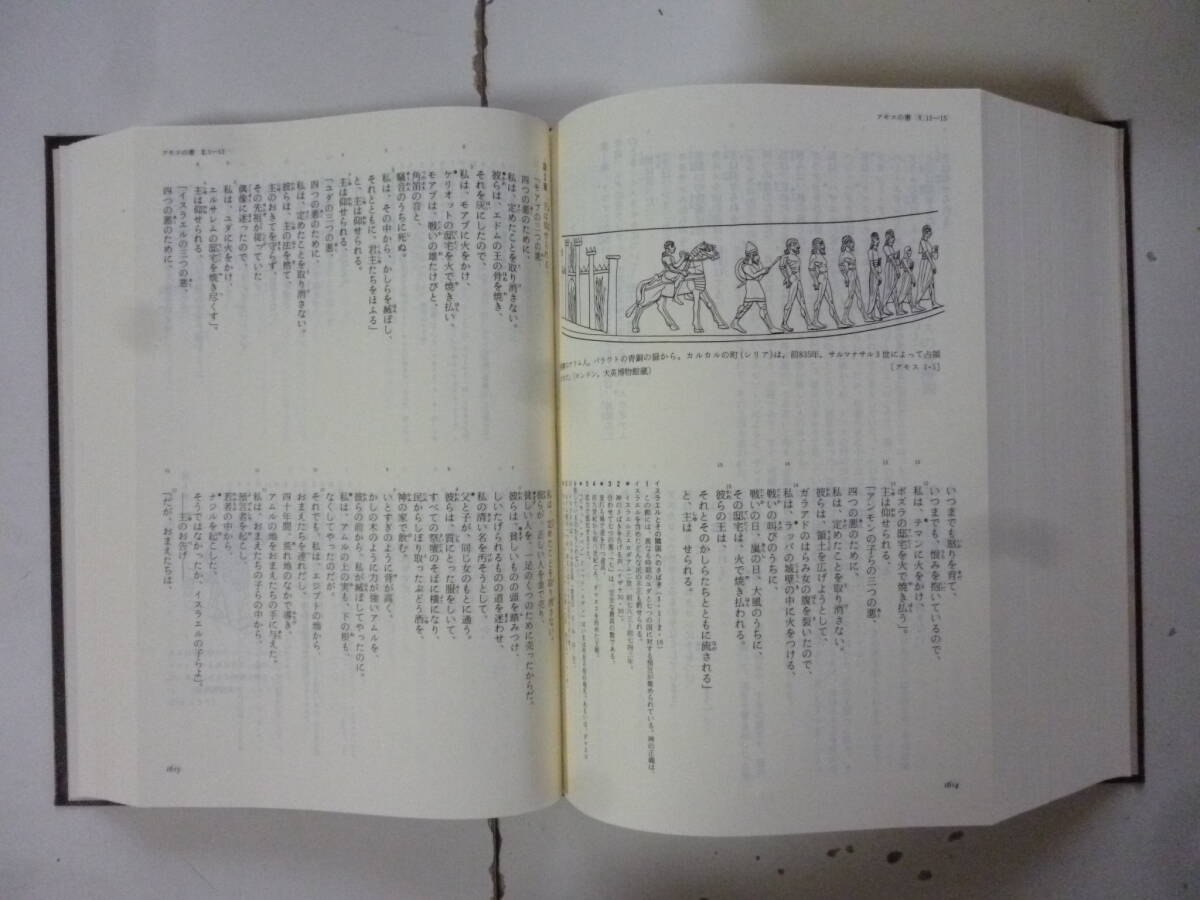 アモスの書 I, 11—15
アラム人。バラワトの青銅の扉から。カルカルの町(シリア)は、前835年、サルマナサル3世によって占領
(ロンドン、大英博物館蔵)
[アモス 1・5]
いつまでも怒りを育て、
いつまでも、恨みを抱いているので、
私は、テマンに火をかけ、
ボズラの邸宅を火で焼き払う」。
主は仰せられる、
「アンモンの子らの三つの悪、
四つの悪のために、
私は、定めたことを取り消さない。
彼らは、領土を広げようとして、
ガラアドのはらみ女の腹を裂いたので、
私は、ラッバの城壁の中に火をつける、
戦いの叫びのうちに、
戦いの日、嵐の日、大風のうちに、
その邸宅は、火で焼き払われる。
彼らの王は、
それとそのかしらたちとともに流される」
と、主は せられる。
イスラエルとその隣国へのさばき(1・3—2・16)
1614
アモスの書
「モアブの三つの悪、
四つの悪のために、
私は、定めたことを取り消さない。
彼らは、エドムの王の骨を焼き、
それを灰にしたので、
私は、モアブに火をかけ、
ケリオットの邸宅を火で焼き払い、
モアブは、戦いの雄たけびと、
角笛の音と、
騒音のうちに死ぬ。
私は、その中から、かしらを滅ぼし、
それとともに、君主たちをほふる」
と、主は仰せられる。
主は仰せられる、
「ユダの三つの悪、
四つの悪のために、
私は、定めたことを取り消さない。
彼らは、主の法を捨て、
主のおきてを守らず、
その先祖が従っていた
偶像に迷ったので、
私は、ユダに火をかけ、
エルサレムの邸宅を焼き尽くす」。
主は仰せられる、
「イスラエルの三つの悪、
四つの悪のために、
私は、定めたことを取り消さない。
彼らが、正しい人を金で売り、
貧しい人を、一足のくつのために売ったからだ。
彼らは、貧しいものの頭を踏みつけ、
しいたげられるものの道を迷わせ、
私の清い名を汚そうとして、
父と子が、同じ女のもとに通う。
彼らは、質にとった服をしいて、
すべての祭壇のそばに横になり、
民からしぼり取ったぶどう酒を、
神の家で飲む。
いとすぎのように背が高く、
かしの木のように力が強いアムルを、
彼らの前から、私が滅ぼしてやったのに。
私は、アムルの上の実も、下の根も、
なくしてやったのだが。
それでも、私は、エジプトの地から、
おまえたちを連れだし、
四十年間、荒れ地のなかで導き、
アムルの地をおまえたちの手に与えた。
私は、おまえたちの子らの中から、
預言者を起こし、
若者の中から、
ナジルを起こした。
そうではなかったか、イスラエルの子らよ」。
——主のお告げ
「だが、おまえたちは、
1615